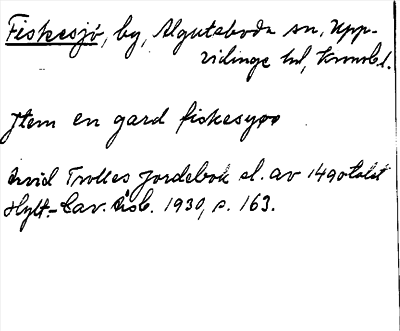 Fiskesjö, by, Algutsboda sn, Upp-
vidinge hd, Kronobl.
Jtem en gard fiskesyøø
Arvid Trolles jordebok sl. av 1490talet
Hylt.-Cav. årsb. 1930, s. 163.